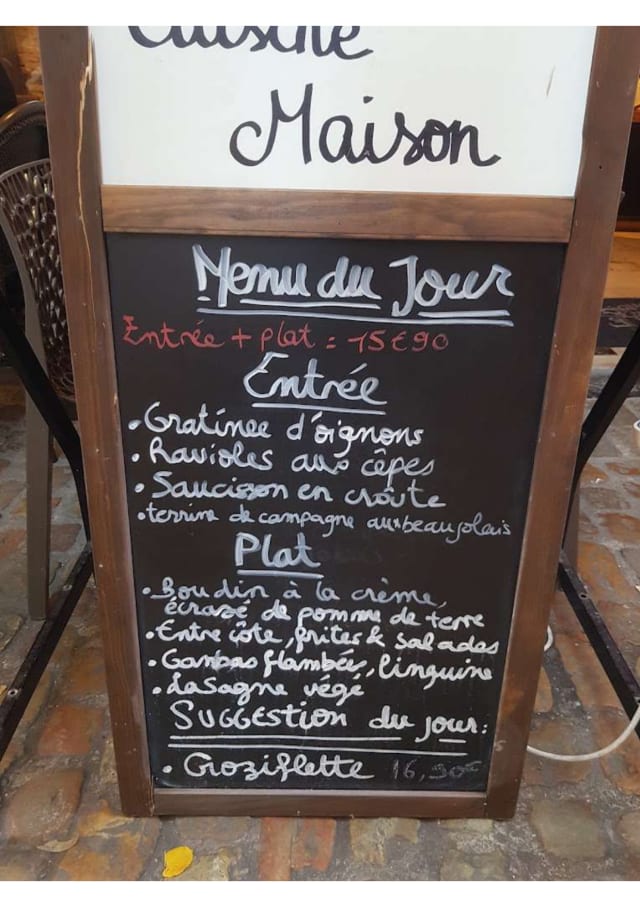 Cuisine
Maison
Menu du Jour
Entrée + plat = 15€90
Entrée
• Gratinée d'oignons
• Ravioles aux cêpes
• Saucisson en croûte
• terrine de campagne aux beaujolais
Plat
• Boudin à la crème,
écrasé de pomme de terre
• Entre côte, frites & salades
• Gambas flambée, linguine
• Lasagne végé
SUGGEStion du jour:
• Croziflette 16,90€